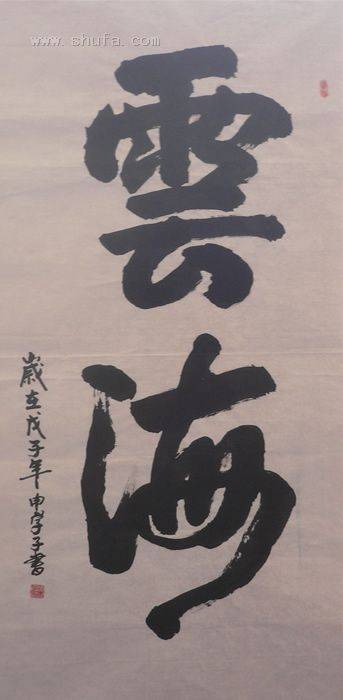 www.shufa.com
雲海
歲在戊子年申學子書